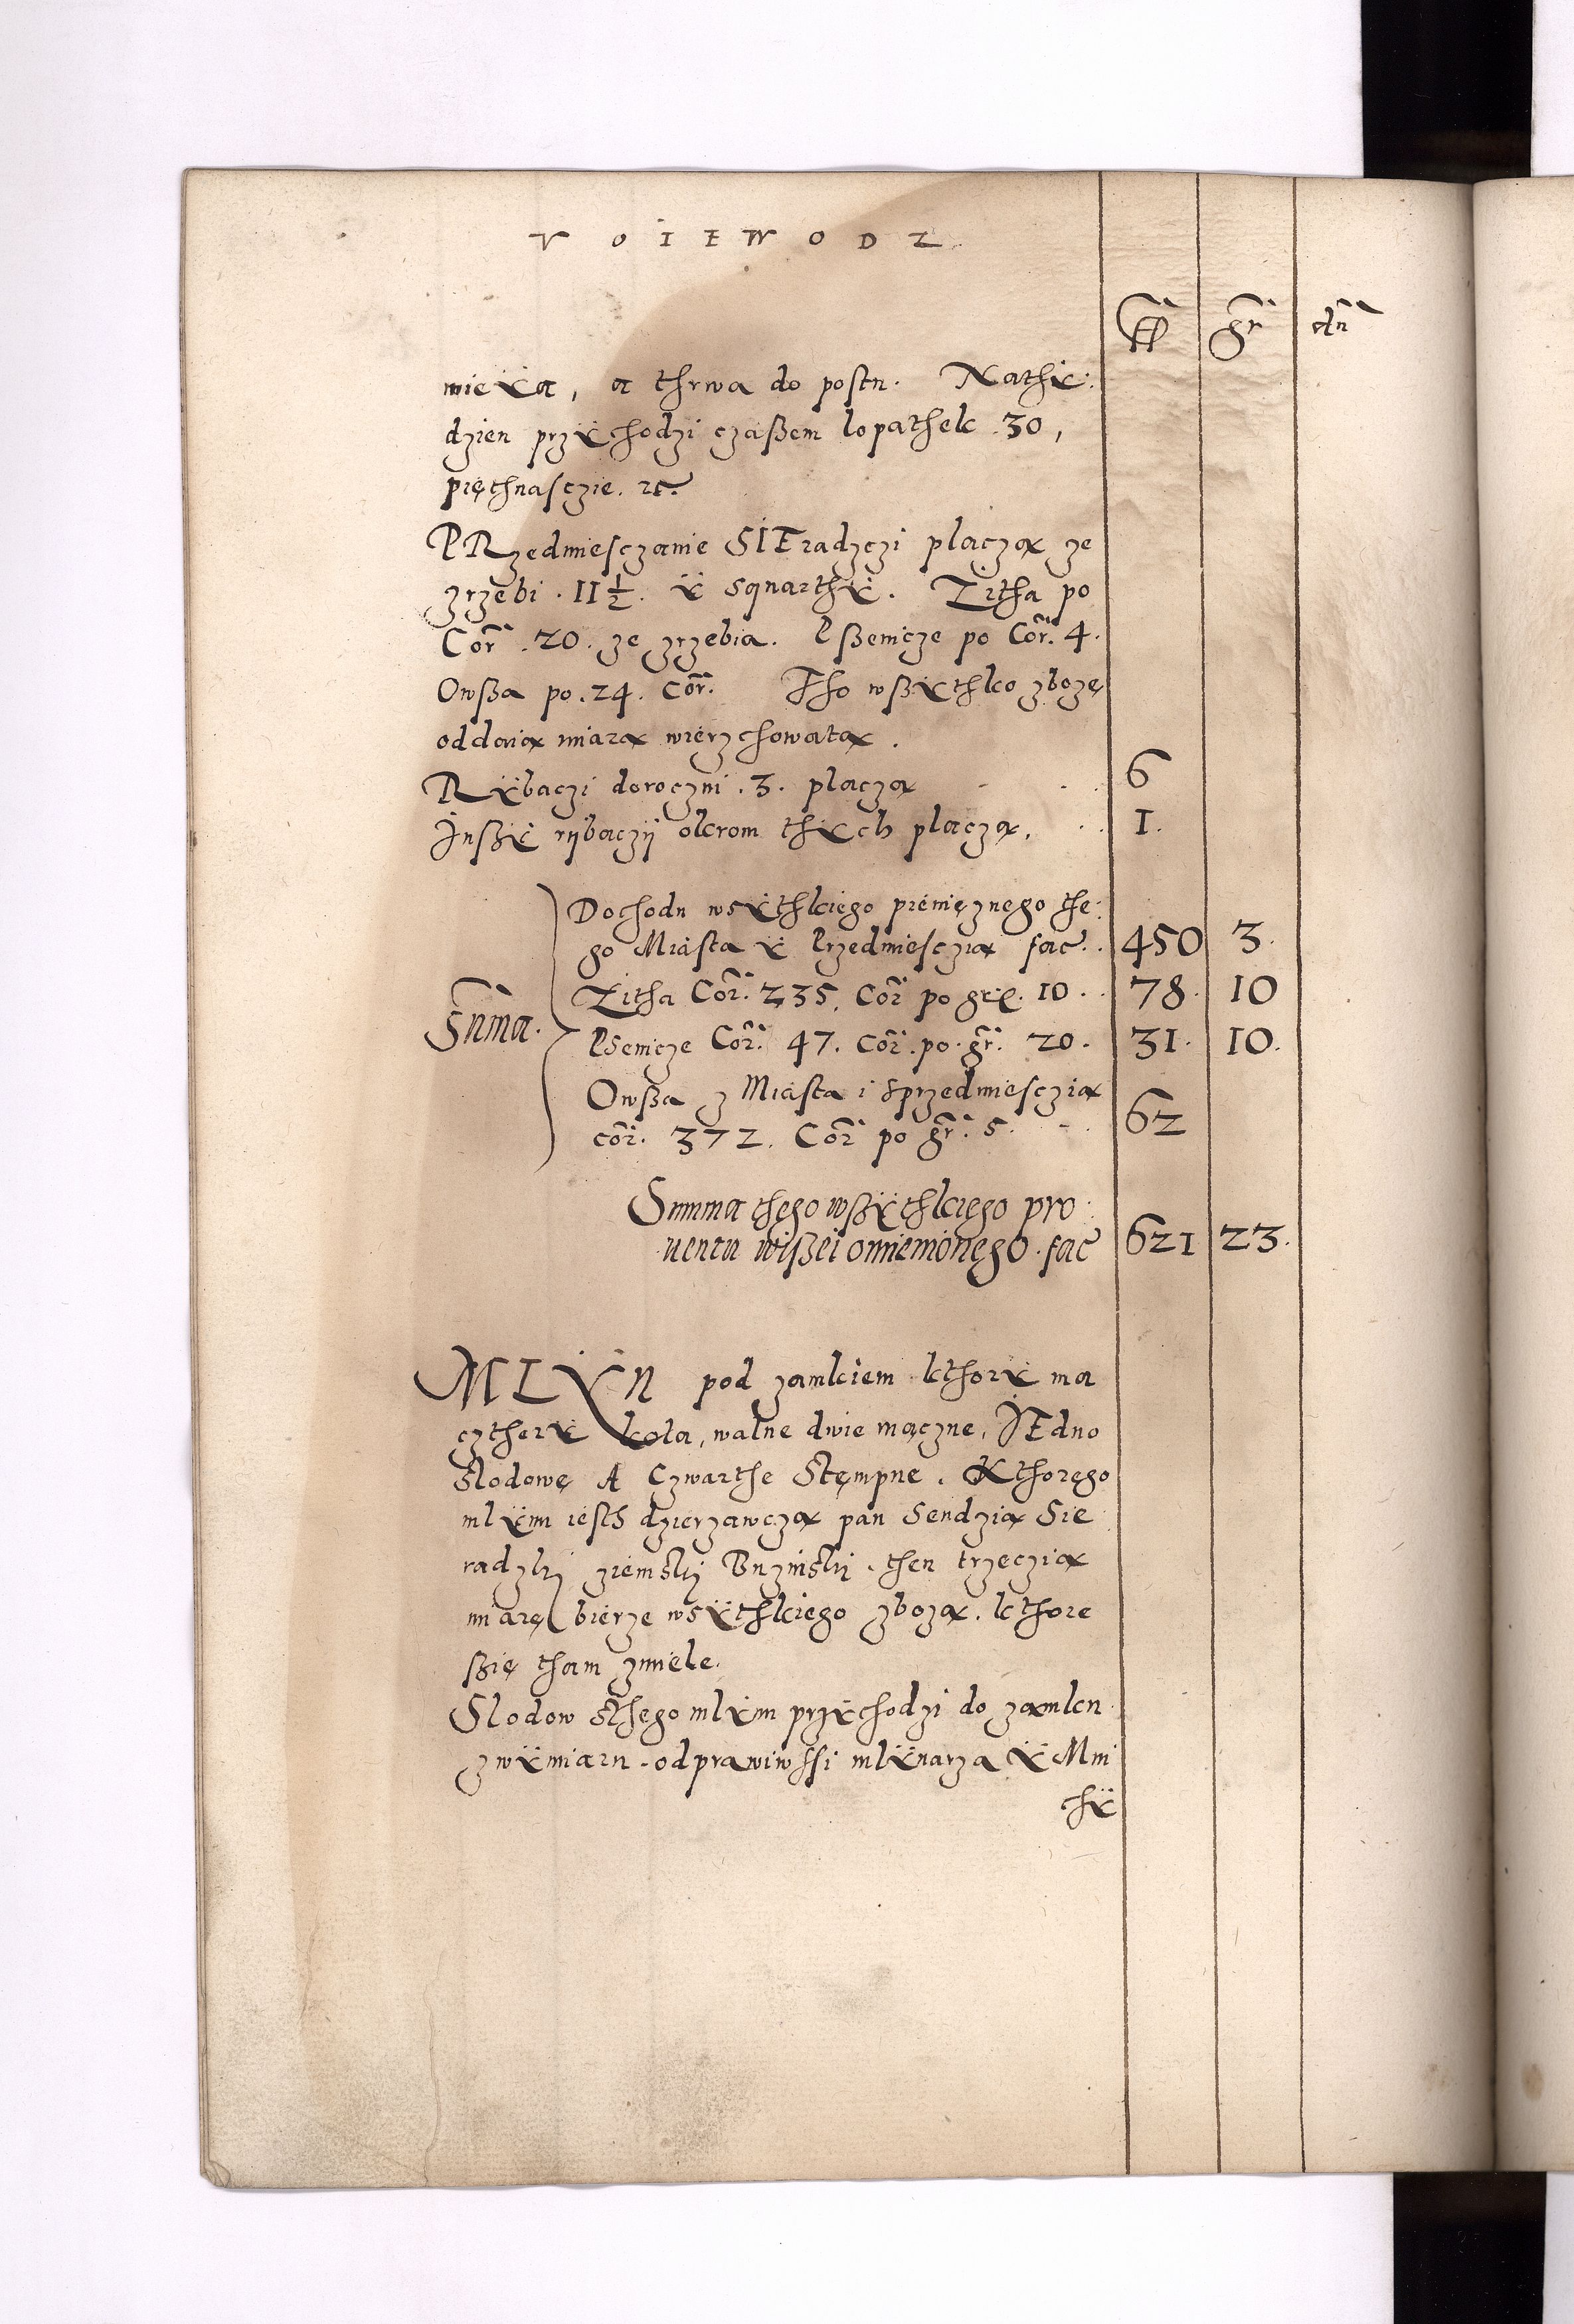 VOIEWODZ
fl gr dn
mieÿa, a thrwa do postu. Nathÿ:
dzien przÿchodzi czaßem lopathek .30,
pięthnasczie. etc.
PRzedmiesczanie SIEradzczi placzą ze
zrzebi . II½. ÿ sqwarthÿ. Zitha po
Cor .20. ze zrzebia. Pßenicze po Cor. 4.
Owßa po .24. Cor. Tho wßÿthko zbozę
oddaią miarą wierzchowatą.
Rÿbaczi doroczni .3. placzą 6
Inßÿ rÿbaczÿ okrom thÿch placzą. I.
Dochodu wsÿthkiego pienięznego the:
go Miasta ÿ Przedmiesczia fac. 450 3.
Zitha Cor. 235. Cor po gr. 10. 78. 10
Suma. Psenicze Cor. 47. Cor. po. gr. 20. 31. 10.
Owßa z Miasta i sprzedmiesczia
cor. 372. Cor po gr. 5. 62
Summa thego wßÿthkiego pro
uentu wißei omienionego. fac 621 23.
MLYN pod zamkiem kthorÿ ma
cztherÿ kola, walne dwie mączne, IEdno
slodowe A Czwarthe Stępne. Kthorego
mlÿnu iesth dzierzawczą pan Sendzia Sie
radzki ziemski Buzinski. then trzeczią
miarę bierze wsÿthkiego zboza. kthore
ßię tham zmiele.
Slodow sthego mlÿnu przÿchodzi do zamku
zwÿmiaru. odprawiwssi mlÿnarza ÿ Mni
chÿ